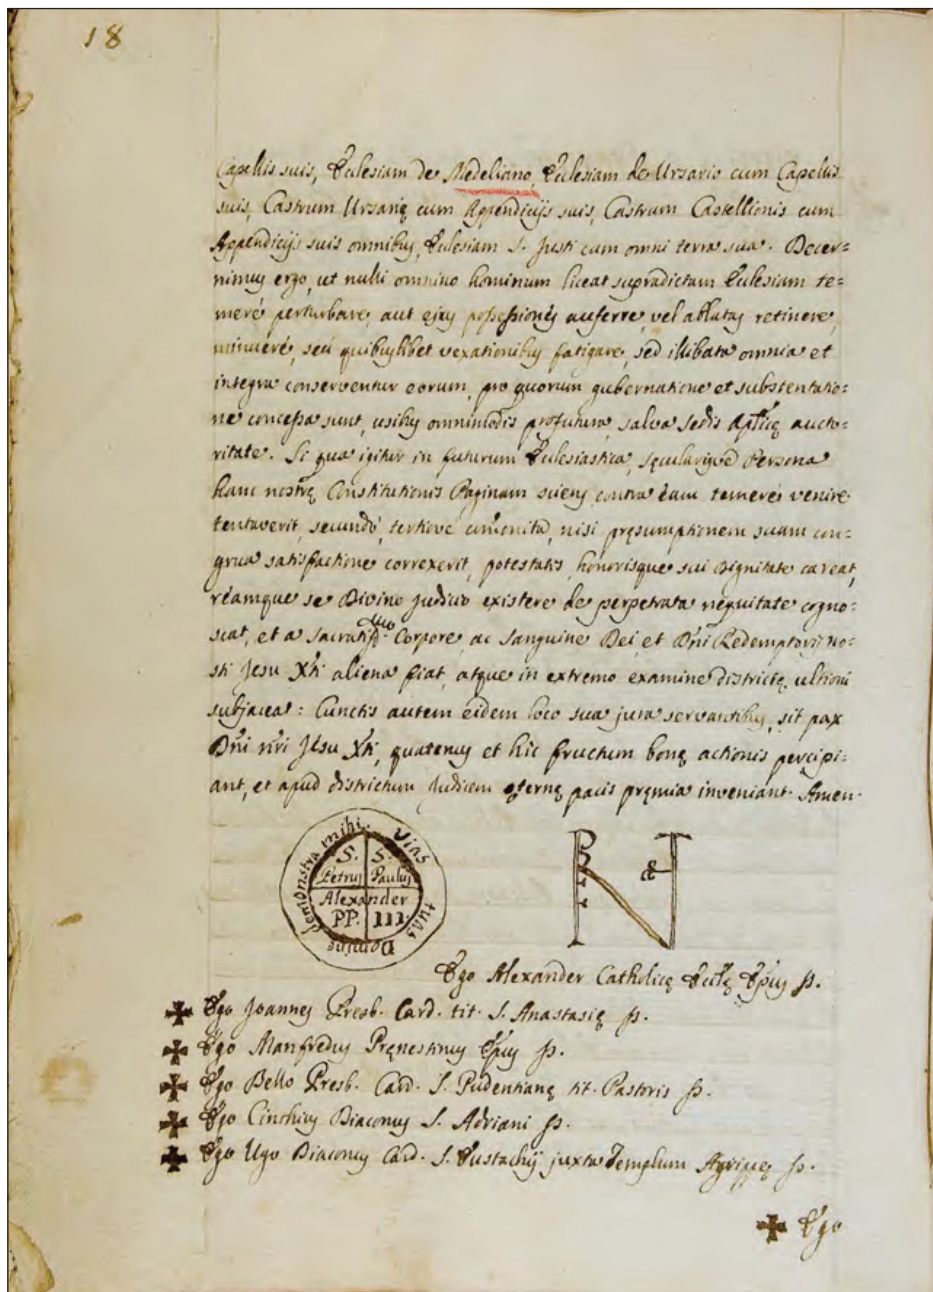 18
Capellis suis, Eclesiam de Medeliano, Eclesiam de Ursario cum Capellis
suis, Castrum Ursarię cum Appendicijs suis, Castrum Castellionis cum
Appendicijs suis omnibus, Eclesiam S. Justi cum omni terra sua. Decer=
nimus ergo, ut nulli omnino hominum liceat supradictam Eclesiam te=
meré perturbare, aut ejus possessiones auferre, vel ablatas retinere,
minueré, seú quibuslibet vexationibus fatigare, sed illibata omnia et
integra conserventur eorum, pro quorum gubernatione et substentatio=
ne concessa sunt, usibus omnimodis profutura, salva Sedis Aplicę aucto=
ritate. Si qua igitur in futurum Eclesiastica, sęcularisque Persona
hanc nostrę Constitutionis Paginam sciens, contra eam temeré venire
tentaverit, secundó, tertiove comonita, nisi pręsumptionem suam con=
grua satisfactione correxerit, potestatis, honorisque sui Dignitate careat,
réamque se Divino Judicio existere de perpetrata nequitate cogno=
scat, et a Sacratiss.mo Corpore, ac Sanguine Dei, et Dñi Redemptoris no=
sti Jesu Xti aliena fiat, atque in extremo examine districtę ultioni
subjacea: Cunctis autem eidem loco sua jura servantibus, sit pax
Dñi nri Jesu Xti, quatenus et hic fructum bonę actionis percipi=
ant, et apud districtum Judicem ęternę pacis pręmia inveniant. Amen.
Vias tuas Domine demonstra mihi.
S. Petrus S. Paulus
Alexander
PP. III.
Ego Alexander Catholicę Eclę Epus ss.
Ego Joannes Presb. Card. tit. S. Anastasię ss.
Ego Manfredus Pręnestinus Epus ss.
Ego Bello Presb. Card. S. Pudentianę tit. Pastoris ss.
Ego Cinthius Diaconus S. Adriani ss.
Ego Ugo Diaconus Card. S. Eustachij juxta Templum Agrippę ss.
Ego